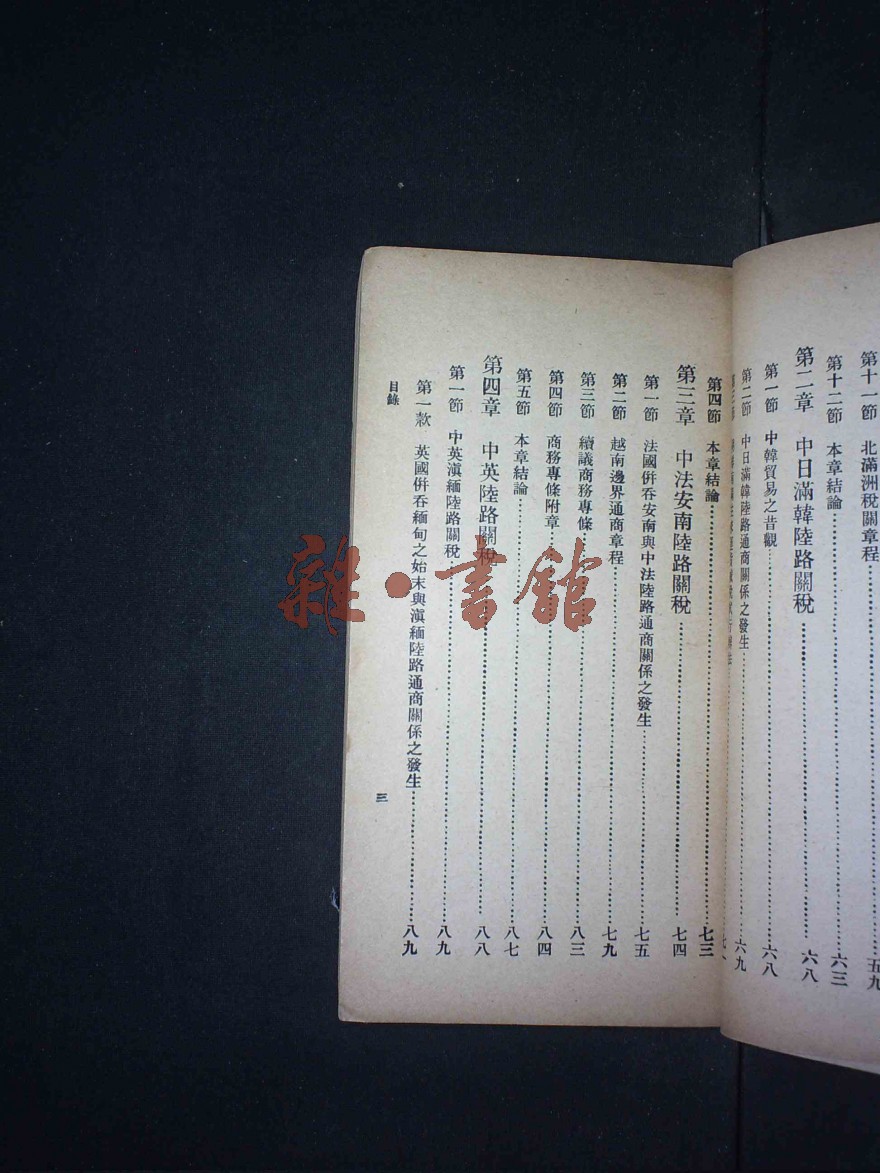 第十一節 北滿洲稅關章程……五九
第十二節 本章結論……六三
第二章 中日滿韓陸路關稅……六八
第一節 中韓貿易之昔觀……六八
第二節 中日滿韓陸路通商關係之發生……六九
第四節 本章結論……七三
第三章 中法安南陸路關稅……七四
第一節 法國併吞安南與中法陸路通商關係之發生……七五
第二節 越南邊界通商章程……七九
第三節 續議商務專條……八三
第四節 商務專條附章……八四
第五節 本章結論……八七
第四章 中英陸路關稅……八八
第一節 中英滇緬陸路關稅……八九
第一款 英國併吞緬甸之始末與滇緬陸路通商關係之發生……八九
目錄
三
雜·書館